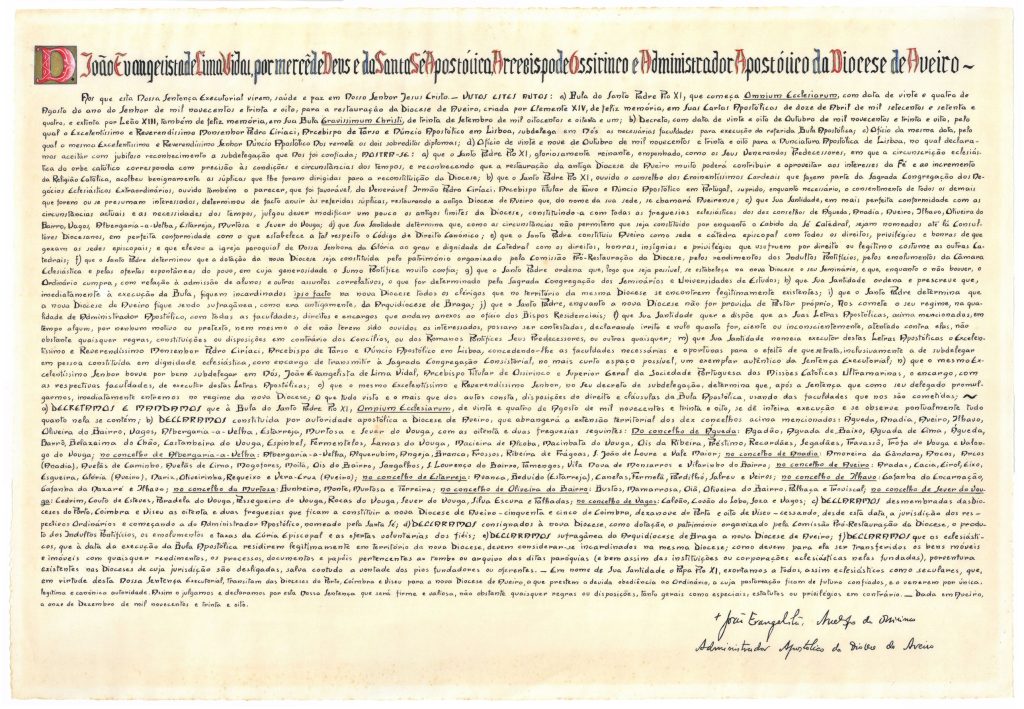 D. João Evangelista de Lima Vidal, por mercê de Deus e da Santa Sé Apostólica, Arcebispo de Ossirinco e Administrador Apostólico da Diocese de Aveiro ~
Aos que esta Nossa Sentença Executorial virem, saúde e paz em Nosso Senhor Jesus Cristo. — VISTOS ESTES AUTOS: a) Bula do Santo Padre Pio XI, que começa Omnium Ecclesiarum, com data de vinte e quatro de
Agosto do ano do Senhor de mil novecentos e trinta e oito, para a restauração da Diocese de Aveiro, criada por Clemente XIV, de feliz memória, em suas Cartas Apostólicas de doze de Abril de mil setecentos e setenta e
quatro, e extinta por Leão XIII, também de feliz memória, em sua Bula Gravissimum Christi, de trinta de Setembro de mil oitocentos e oitenta e um; b) Decreto, com data de vinte e oito de Outubro de mil novecentos e trinta e oito, pelo
qual o Excelentíssimo e Reverendíssimo Monsenhor Pedro Ciriaci, Arcebispo de Tarso e Núncio Apostólico em Lisboa, subdelega em Nós as necessárias faculdades para execução da referida Bula Apostólica; c) Ofício da mesma data, pelo
qual o mesmo Excelentíssimo e Reverendíssimo Senhor Núncio Apostólico Nos remete os dois sobreditos diplomas; d) Ofício de vinte e nove de Outubro de mil novecentos e trinta e oito para a Nunciatura Apostólica de Lisboa, no qual declara-
mos aceitar com jubiloso reconhecimento a subdelegação que Nos foi confiada; MOSTRA-SE: a) que o Santo Padre Pio XI, gloriosamente reinante, empenhado, como os Seus Venerandos Predecessores, em que a circunscrição eclesiás-
tica do orbe católico corresponda com precisão às condições e circunstâncias dos tempos, e reconhecendo que a restauração da antiga Diocese de Aveiro muito poderá contribuir e aproveitar aos interesses da Fé e ao incremento
da Religião Católica, acolheu benignamente as súplicas que lhe foram dirigidas para a reconstituição da Diocese; b) que o Santo Padre Pio XI, ouvido o conselho dos Eminentíssimos Cardeais que fazem parte da Sagrada Congregação dos Ne-
gócios Eclesiásticos Extraordinários, ouvido também o parecer, que foi favorável, do Venerável Irmão Pedro Ciriaci, Arcebispo titular de Tarso e Núncio Apostólico em Portugal, suprido, enquanto necessário, o consentimento de todos os demais
que forem ou se presumam interessados, determinou de facto anuir às referidas súplicas, restaurando a antiga Diocese de Aveiro que, do nome da sua sede, se chamará Aveirense; c) que Sua Santidade, em mais perfeita conformidade com as
circunstâncias actuais e as necessidades dos tempos, julgou dever modificar um pouco os antigos limites da Diocese, constituindo-a com todas as freguesias eclesiásticas dos dez concelhos de Águeda, Anadia, Aveiro, Ílhavo, Oliveira do
Bairro, Vagos, Albergaria-a-Velha, Estarreja, Murtosa e Sever do Vouga; d) que Sua Santidade determina que, como as circunstâncias não permitem que seja constituído por enquanto o Cabido da Sé Catedral, sejam nomeados até lá Consul-
tores Diocesanos, em perfeita conformidade com o que estabelece a tal respeito o Código de Direito Canónico; e) que o Santo Padre constituiu Aveiro como sede e cátedra episcopal com todos os direitos, privilégios e honras de que
gozam as sedes episcopais; e que elevou a igreja paroquial de Nossa Senhora da Glória ao grau e dignidade de Catedral com os direitos, honras, insígnias e privilégios que usufruem por direito ou legítimo costume as outras Ca-
tedrais; f) que o Santo Padre determinou que a dotação da nova Diocese seja constituída pelo património organizado pela Comissão Pró-Restauração da Diocese, pelos rendimentos dos Indultos Pontifícios, pelos emolumentos da Câmara
Eclesiástica e pelas ofertas espontâneas do povo, em cuja generosidade o Sumo Pontífice muito confia; g) que o Santo Padre ordena que, logo que seja possível, se estabeleça na nova Diocese o seu Seminário, e que, enquanto o não houver, o
Ordinário cumpra, com relação à admissão de alunos e outros assuntos correlativos, o que for determinado pela Sagrada Congregação dos Seminários e Universidades de Estudos; h) que Sua Santidade ordena e prescreve que,
imediatamente à execução da Bula, fiquem incardinados ipso facto na nova Diocese todos os clérigos que no território da mesma Diocese se encontrem legitimamente existentes; i) que o Santo Padre determina que
a nova Diocese de Aveiro fique sendo sufragânea, como era antigamente, da Arquidiocese de Braga; j) que o Santo Padre, enquanto a nova Diocese não for provida de Pastor próprio, Nos comete o seu regime, na qua-
lidade de Administrador Apostólico, com todas as faculdades, direitos e encargos que andam anexos ao ofício dos Bispos Residenciais; l) que Sua Santidade quer e dispõe que as Suas Letras Apostólicas, acima mencionadas, em
tempo algum, por nenhum motivo ou pretexto, nem mesmo o de não terem sido ouvidos os interessados, possam ser contestadas, declarando írrito e nulo quanto for, ciente ou inconscientemente, atentado contra elas, não
obstante quaisquer regras, constituições ou disposições em contrário dos Concílios, ou dos Romanos Pontífices Seus Predecessores, ou outras quaisquer; m) que Sua Santidade nomeia executor destas Letras Apostólicas o Excelen-
tíssimo e Reverendíssimo Monsenhor Pedro Ciriaci, Arcebispo de Tarso e Núncio Apostólico em Lisboa, concedendo-lhe as faculdades necessárias e oportunas para o efeito de que se trata, inclusivamente a de subdelegar
em pessoa constituída em dignidade eclesiástica, com encargo de transmitir à Sagrada Congregação Consistorial, no mais curto espaço possível, um exemplar autêntico da Sentença Executorial; n) que o mesmo Ex-
celentíssimo Senhor houve por bem subdelegar em Nós, João Evangelista de Lima Vidal, Arcebispo Titular de Ossirinco e Superior Geral da Sociedade Portuguesa das Missões Católicas Ultramarinas, o encargo, com
as respectivas faculdades, de executor destas Letras Apostólicas; o) que o mesmo Excelentíssimo e Reverendíssimo Senhor, no seu decreto de subdelegação, determina que, após a sentença que como seu delegado promul-
garmos, imediatamente entremos no regime da nova Diocese; O que tudo visto e o mais que dos autos consta, disposições do direito e cláusulas da Bula Apostólica, usando das faculdades que nos são cometidas; ~
a) DECRETAMOS E MANDAMOS que à Bula do Santo Padre Pio XI, Omnium Ecclesiarum, de vinte e quatro de Agosto de mil novecentos e trinta e oito, se dê inteira execução e se observe pontualmente tudo
quanto nela se contém; b) DECLARAMOS constituída por autoridade apostólica a Diocese de Aveiro, que abrangerá a extensão territorial dos dez concelhos acima mencionados: Águeda, Anadia, Aveiro, Ílhavo,
Oliveira do Bairro, Vagos, Albergaria-a-Velha, Estarreja, Murtosa e Sever do Vouga, com as oitenta e duas freguesias seguintes: No concelho de Águeda: Agadão, Aguada de Baixo, Aguada de Cima, Águeda,
Barrô, Belazaima do Chão, Castanheira do Vouga, Espinhel, Fermentelos, Lamas do Vouga, Macieira de Alcoba, Macinhata do Vouga, Ois da Ribeira, Préstimo, Recardães, Segadães, Travassô, Trofa do Vouga e Valon-
go do Vouga; no concelho de Albergaria-a-Velha: Albergaria-a-Velha, Alquerubim, Angeja, Branca, Frossos, Ribeira de Fráguas, S. João de Loure e Vale Maior; no concelho de Anadia: Amoreira da Gândara, Ancas, Arcos
(Anadia), Avelãs de Caminho, Avelãs de Cima, Mogofores, Moita, Ois do Bairro, Sangalhos, S. Lourenço do Bairro, Tamengos, Vila Nova de Monsarros e Vilarinho do Bairro; no concelho de Aveiro: Aradas, Cacia, Eirol, Eixo,
Esgueira, Glória (Aveiro), Nariz, Oliveirinha, Requeixo e Vera-Cruz (Aveiro); no concelho de Estarreja: Avanca, Beduído (Estarreja), Canelas, Fermelã, Pardilhó, Salreu e Veiros; no concelho de Ílhavo: Gafanha da Encarnação,
Gafanha da Nazaré e Ílhavo; no concelho da Murtosa: Bunheiro, Monte, Murtosa e Torreira; no concelho de Oliveira do Bairro: Bustos, Mamarrosa, Oiã, Oliveira do Bairro, Palhaça e Troviscal; no concelho de Sever do Vou-
ga: Cedrim, Couto de Esteves, Paradela do Vouga, Pessegueiro do Vouga, Rocas do Vouga, Sever do Vouga, Silva Escura e Talhadas; no concelho de Vagos: Calvão, Covão do Lobo, Sosa e Vagos; c) DECLARAMOS desmembradas das dio-
ceses do Porto, Coimbra e Viseu as oitenta e duas freguesias que ficam a constituir a nova Diocese de Aveiro - cinquenta e cinco de Coimbra, dezanove do Porto e oito de Viseu - cessando, desde esta data, a jurisdição dos res-
pectivos Ordinários e começando a do Administrador Apostólico, nomeado pela Santa Sé; d) DECLARAMOS consignados à nova Diocese, como dotação, o património organizado pela Comissão Pró-Restauração da Diocese, o produ-
to dos Indultos Pontifícios, os emolumentos e taxas da Cúria Episcopal e as ofertas voluntárias dos fiéis; e) DECLARAMOS sufragânea da Arquidiocese de Braga a nova Diocese de Aveiro; f) DECLARAMOS que os eclesiásti-
cos, que à data da execução da Bula Apostólica residirem legitimamente em território da nova Diocese, devem considerar-se incardinados na mesma Diocese; como devem para ela ser transferidos os bens móveis
e imóveis com quaisquer rendimentos, e processos, documentos e papéis pertencentes ao fundo ou arquivo das ditas paróquias (e bem assim das instituições ou corporações eclesiásticas nelas fundadas), porventura
existentes nas Dioceses de cuja jurisdição são desligadas, salva contudo a vontade dos pios fundadores ou oferentes. — Em nome de Sua Santidade o Papa Pio XI, exortamos a todos, assim eclesiásticos como seculares, que,
em virtude desta Nossa Sentença Executorial, transitam das Dioceses do Porto, Coimbra e Viseu para a nova Diocese de Aveiro, a que prestem a devida obediência ao Ordinário, a cuja pastoração ficam de futuro confiados, e o venerem por única,
legítima e canónica autoridade. Assim o julgamos e declaramos por esta Nossa Sentença que será firme e valiosa, não obstante quaisquer regras ou disposições, tanto gerais como especiais, estatutos ou privilégios em contrário. — Dada em Aveiro,
a onze de Dezembro de mil novecentos e trinta e oito.
+ João Evangelista, Arcebpo de Ossirinco
Administrador Apostólico da Diocese de Aveiro